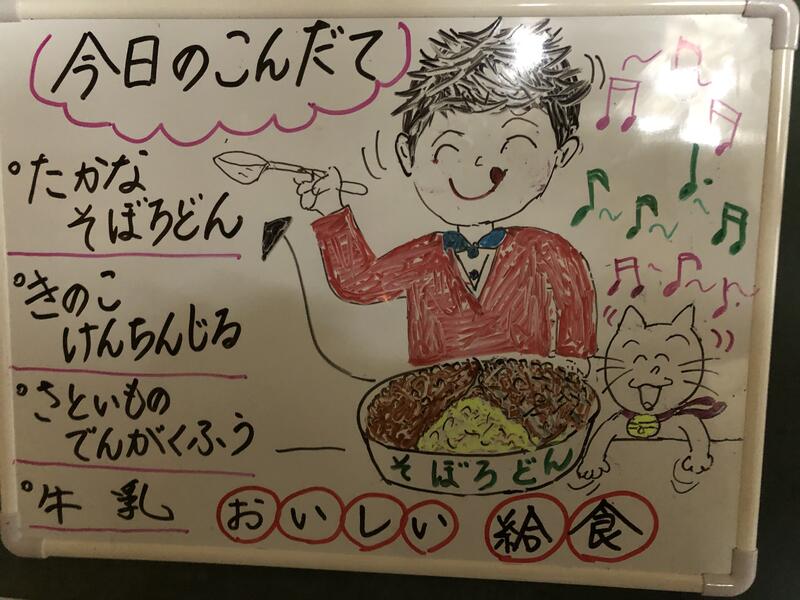 今日のこんだて
たかな
そぼろどん
きのこ
けんちんじる
さといもの
でんがくふう
牛乳
そぼろどん
おいしい給食